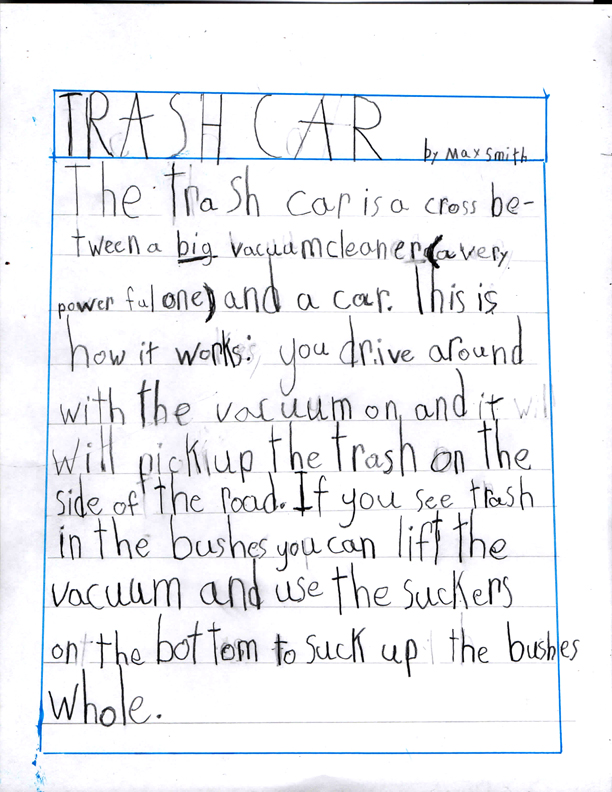 TRASH CAR
by Max Smith
The trash car is a cross be-
tween a big vacuum cleaner (a very
power ful one) and a car. This is
how it works: you drive around
with the vacuum on and it
will pick up the trash on the
side of the road. If you see trash
in the bushes you can lift the
vacuum and use the suckers
on the bottom to suck up the bushes
whole.